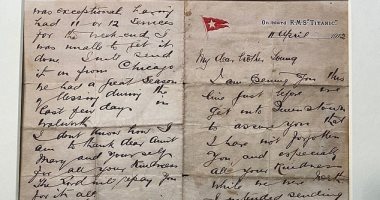 was exceptional having
had 11 or 12 services
for the weekend I
was unable to get it
done. I will send
it on from Chicago
We had a great season
of blessing during the
last few days in
Walworth
I dont know how I
am to thank dear Aunt
Mary and yourself
for all your kindness
The Lord will repay you
for it all
On board R.M.S "TITANIC"
11 April 1912
My dear Sister Young
I am sending you this
line just before we
get into Queenstown
to assure you that
I have not forgotten
you, and especially
all your kindness
while we were North
I intended sending